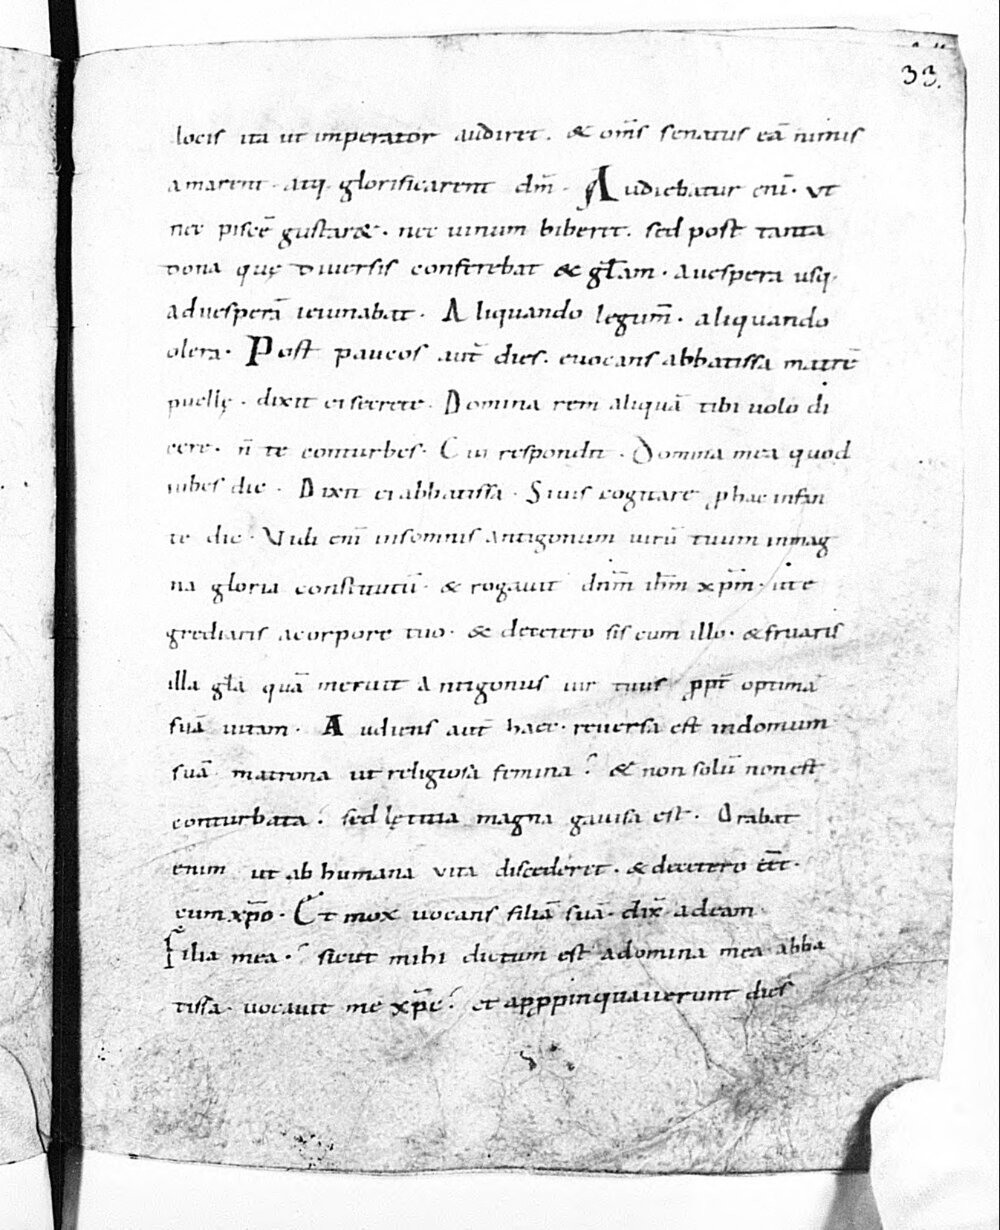 33.
locis ita ut imperator audiret. & om̄s senatus eā nimis
amarent. atq; glorificarent dm̄. Audiebatur eni̅. ut
nec piscē gustar&. nec uinum biberet. sed post tanta
bona quę diuersis conferebat & gl̄am. auespera usq;
aduesperā ieiunabat. Aliquando legum̄. aliquando
olera. Post paucos aut̄ dies. euocans abbatissa matrē
puellę. dixit ei secrete. Domina rem aliquā tibi uolo di
cere. n̄ te conturbes. Cui respondit. Domina mea quod
iubes dic. Dixit ei abbatissa. Siuis cogitare ꝓ hac infan
te dic. Vidi eni̅ insomnis antigonum uirū tuum inmag
na gloria constitutū. & rogauit dnm̄ ihm̄ xp̄m. ut e
grediaris acorpore tuo. & decetero sis cum illo. & fruaris
illa gl̄a quā meruit Antigonus uir tuus ꝓpt̄ optimā
suā uitam. Audiens aut̄ haec. reuersa est indomum
suā matrona ut religiosa femina. & non solū non est
conturbata. sed lętitia magna gauisa est. Orabat
enim ut ab humana uita discederet. & decetero ēēt.
cum xp̄o. Et mox uocans filiā suā. dix̄ adeam
Filia mea. sicut mihi dictum est adomina mea abba
tissa. uocauit me xp̄c. et apꝓpinquauerunt dies